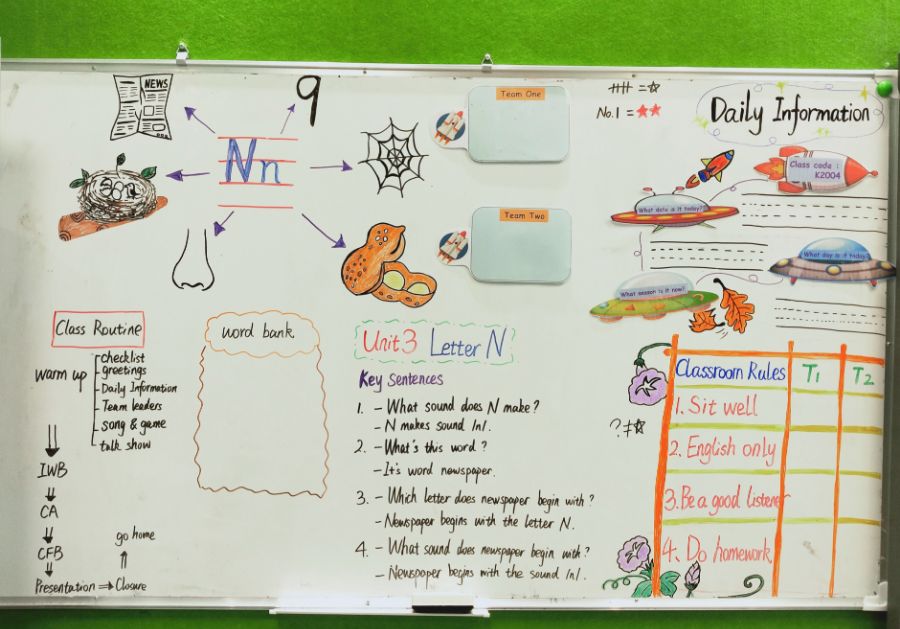 NEWS
9
Nn
Team One
Team Two
卌 =☆
No.1 =★★
Daily Information
Class code :
K2004
What date is it today?
What day is it today?
What season is it now?
Class Routine
warm up
checklist
greetings
Daily Information
Team leaders
song & game
talk show
IWB
CA
CFB
Presentation ⇒ Closure
go home
word bank
Unit3 Letter N
Key Sentences
1. - What sound does N make?
- N makes sound /n/.
2. - What's this word?
- It's word newspaper.
3. - Which letter does newspaper begin with?
- Newspaper begins with the letter N.
4. - What sound does newspaper begin with?
- Newspaper begins with the sound /n/.
?≠☆
Classroom Rules T1 T2
1. Sit well
2. English only
3. Be a good listener
4. Do homework